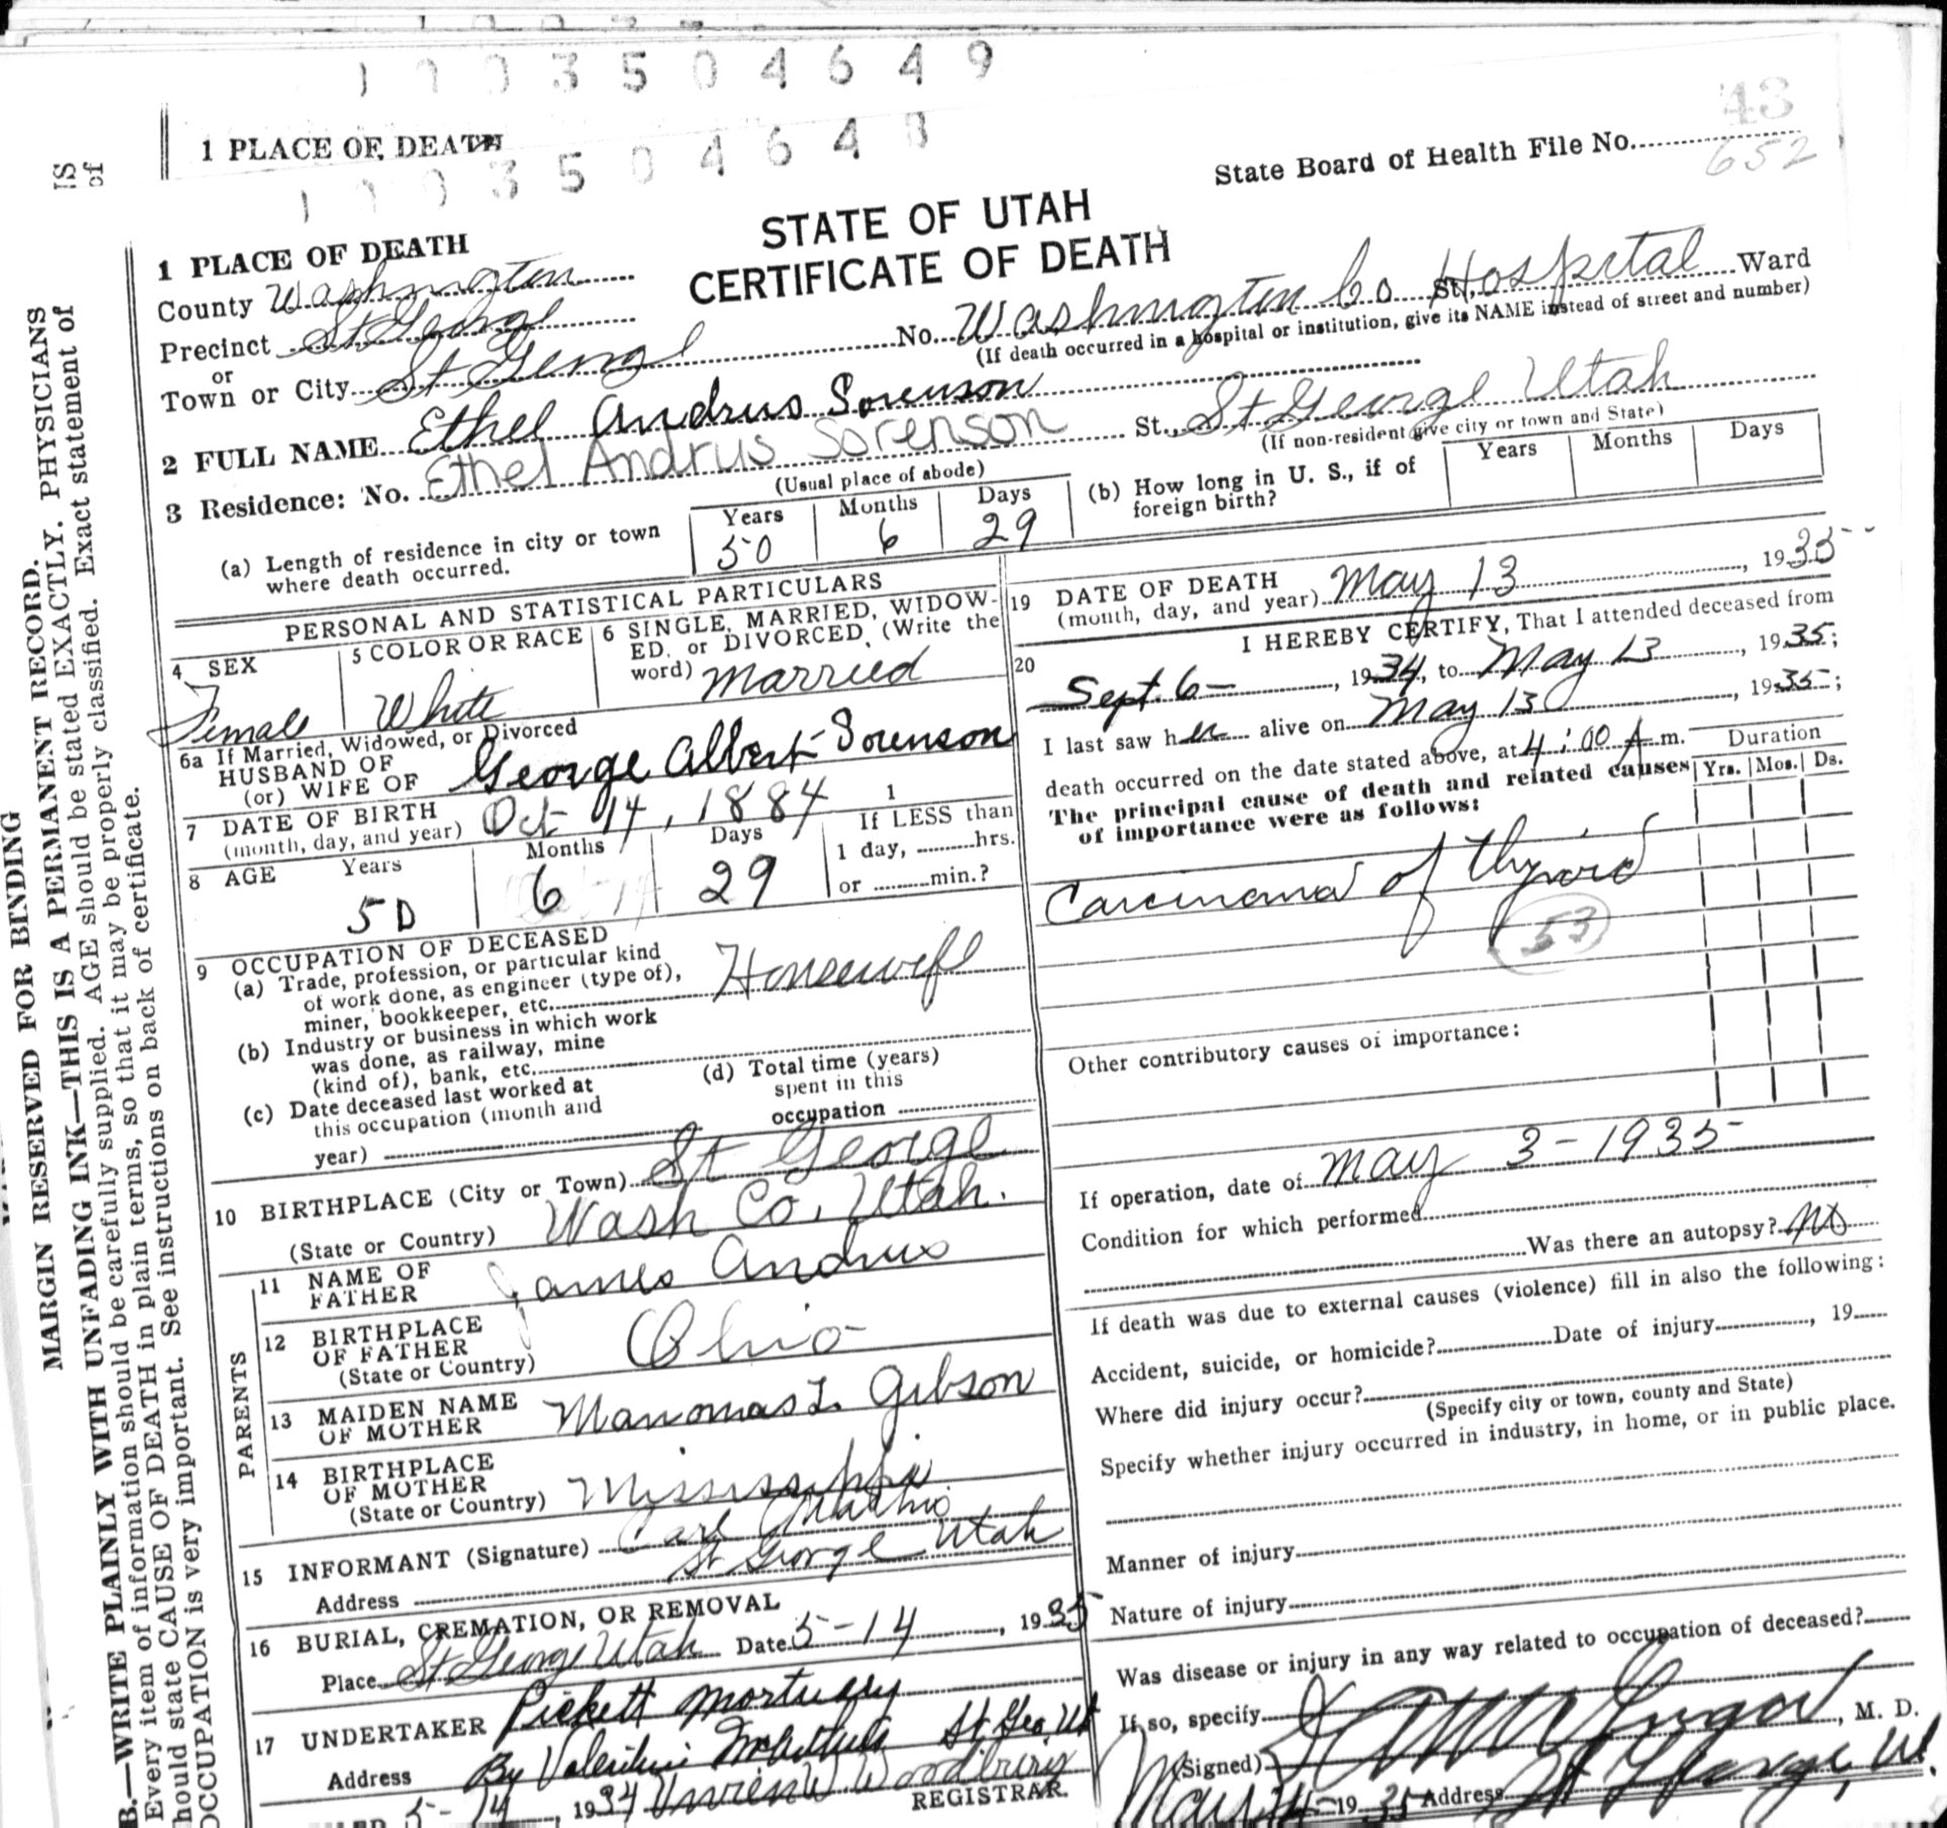 1 0 0 3 5 0 4 6 4 9
43
1 PLACE OF DEATH
1 0 0 3 5 0 4 6 4 8
State Board of Health File No.
652
STATE OF UTAH
CERTIFICATE OF DEATH
1 PLACE OF DEATH
County Washington
Precinct St George
or
Town or City St George No. Washington Co St., Hospital Ward
(If death occurred in a hospital or institution, give its NAME instead of street and number)
2 FULL NAME Ethel Andrus Sorenson
3 Residence: No. Ethel Andrus Sorenson St., St George Utah
(Usual place of abode) (If non-resident give city or town and State)
(a) Length of residence in city or town where death occurred. Years 50 Months 6 Days 29
(b) How long in U. S., if of foreign birth? Years Months Days
PERSONAL AND STATISTICAL PARTICULARS
4 SEX Female
5 COLOR OR RACE White
6 SINGLE, MARRIED, WIDOW-
ED, or DIVORCED, (Write the
word) Married
6a If Married, Widowed, or Divorced
HUSBAND OF
(or) WIFE OF George Albert Sorenson
7 DATE OF BIRTH
(month, day, and year) Oct 14, 1884
8 AGE Years 50 Months 6 Days 29
1
If LESS than
1 day, hrs.
or min.?
9 OCCUPATION OF DECEASED
(a) Trade, profession, or particular kind
of work done, as engineer (type of),
miner, bookkeeper, etc. Housewife
(b) Industry or business in which work
was done, as railway, mine
(kind of), bank, etc.
(c) Date deceased last worked at
this occupation (month and
year)
(d) Total time (years)
spent in this
occupation
10 BIRTHPLACE (City or Town) St George
(State or Country) Wash Co. Utah.
PARENTS
11 NAME OF
FATHER James Andrus
12 BIRTHPLACE
OF FATHER
(State or Country) Ohio
13 MAIDEN NAME
OF MOTHER Manomas L. Gibson
14 BIRTHPLACE
OF MOTHER
(State or Country) Mississippi
15 INFORMANT (Signature) Carl
Address St George Utah
16 BURIAL, CREMATION, OR REMOVAL
Place St George Utah Date 5-14, 1935
17 UNDERTAKER Pickett Mortuary
Address By St Geo. Ut
5-14, 1934 Woodbury
REGISTRAR.
19 DATE OF DEATH
(month, day, and year) May 13, 1935
20 I HEREBY CERTIFY, That I attended deceased from
Sept. 6-, 1934, to May 13, 1935;
I last saw her alive on May 13, 1935;
death occurred on the date stated above, at 4:00 A m.
The principal cause of death and related causes
of importance were as follows:
Duration
Yrs. Mos. Ds.
Carcinoma of thyroid
53
Other contributory causes of importance:
If operation, date of May 3-1935
Condition for which performed
Was there an autopsy? No
If death was due to external causes (violence) fill in also the following:
Accident, suicide, or homicide? Date of injury, 19
Where did injury occur?
(Specify city or town, county and State)
Specify whether injury occurred in industry, in home, or in public place.
Manner of injury
Nature of injury
Was disease or injury in any way related to occupation of deceased?
If so, specify
(Signed) , M. D.
May 14-1935 Address St George, Ut.
MARGIN RESERVED FOR BINDING
B.—WRITE PLAINLY WITH UNFADING INK—THIS IS A PERMANENT RECORD.
Every item of information should be carefully supplied. AGE should be stated EXACTLY. PHYSICIANS
hould state CAUSE OF DEATH in plain terms, so that it may be properly classified. Exact statement of
OCCUPATION is very important. See instructions on back of certificate.
IS
of